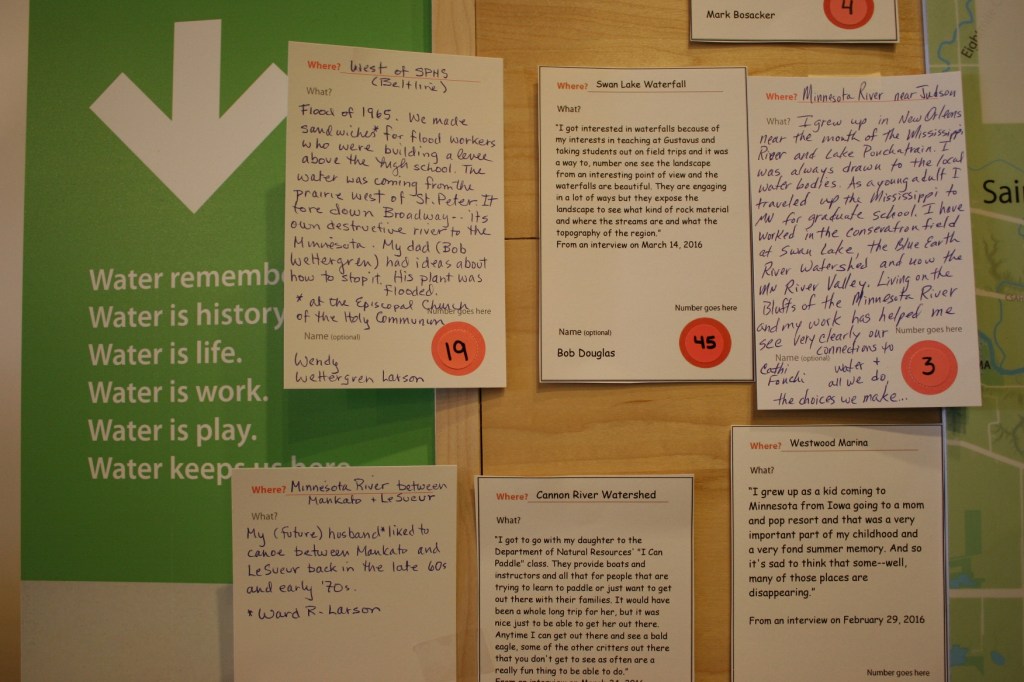 Mark Bosacker
4
Water rememb
Water is history
Water is life.
Water is work.
Water is play.
Water keeps us here.
Where? West of SPHS
(Beltline)
What?
Flood of 1965. We made
sandwiches* for flood workers
who were building a levee
above the high school. The
water was coming from the
prairie west of St. Peter. It
tore down Broadway-- its
own destructive river to the
Minnesota. My dad (Bob
Wettergren) had ideas about
how to stop it. His plant was
flooded.
* at the Episcopal Church
of the Holy Communion
Number goes here
Name (optional)
19
Wendy
Wettergren Larson
Where? Swan Lake Waterfall
What?
"I got interested in waterfalls because of
my interests in teaching at Gustavus and
taking students out on field trips and it was
a way to, number one see the landscape
from an interesting point of view and the
waterfalls are beautiful. They are engaging
in a lot of ways but they expose the
landscape to see what kind of rock material
and where the streams are and what the
topography of the region."
From an interview on March 14, 2016
Number goes here
Name (optional)
45
Bob Douglas
Where? Minnesota River near Judson
What? I grew up in New Orleans
near the mouth of the Mississippi
River and Lake Pontchatrain. I
was always drawn to the local
water bodies. As a young adult I
traveled up the Mississippi to
MN for graduate school. I have
worked in the conservation field
at Swan Lake, the Blue Earth
River Watershed and now the
MN River Valley. Living on the
Bluffs of the Minnesota River
and my work has helped me
see very clearly our
Number goes here
connections to
Name (optional)
water +
Cathi
Fouchi
all we do,
3
the choices we make...
Where? Minnesota River between
Mankato + LeSueur
What?
My (future) husband* liked to
canoe between Mankato and
LeSueur back in the late 60s
and early '70s.
* Ward R. Larson
Where? Cannon River Watershed
What?
"I got to go with my daughter to the
Department of Natural Resources' "I Can
Paddle" class. They provide boats and
instructors and all that for people that are
trying to learn to paddle or just want to get
out there with their families. It would have
been a whole long trip for her, but it was
nice just to be able to get her out there.
Anytime I can get out there and see a bald
eagle, some of the other critters out there
that you don't get to see as often are a
really fun thing to be able to do."
Where? Westwood Marina
What?
"I grew up as a kid coming to
Minnesota from Iowa going to a mom
and pop resort and that was a very
important part of my childhood and
a very fond summer memory. And so
it's sad to think that some--well,
many of those places are
disappearing."
From an interview on February 29, 2016
Number goes here
Sai
MA